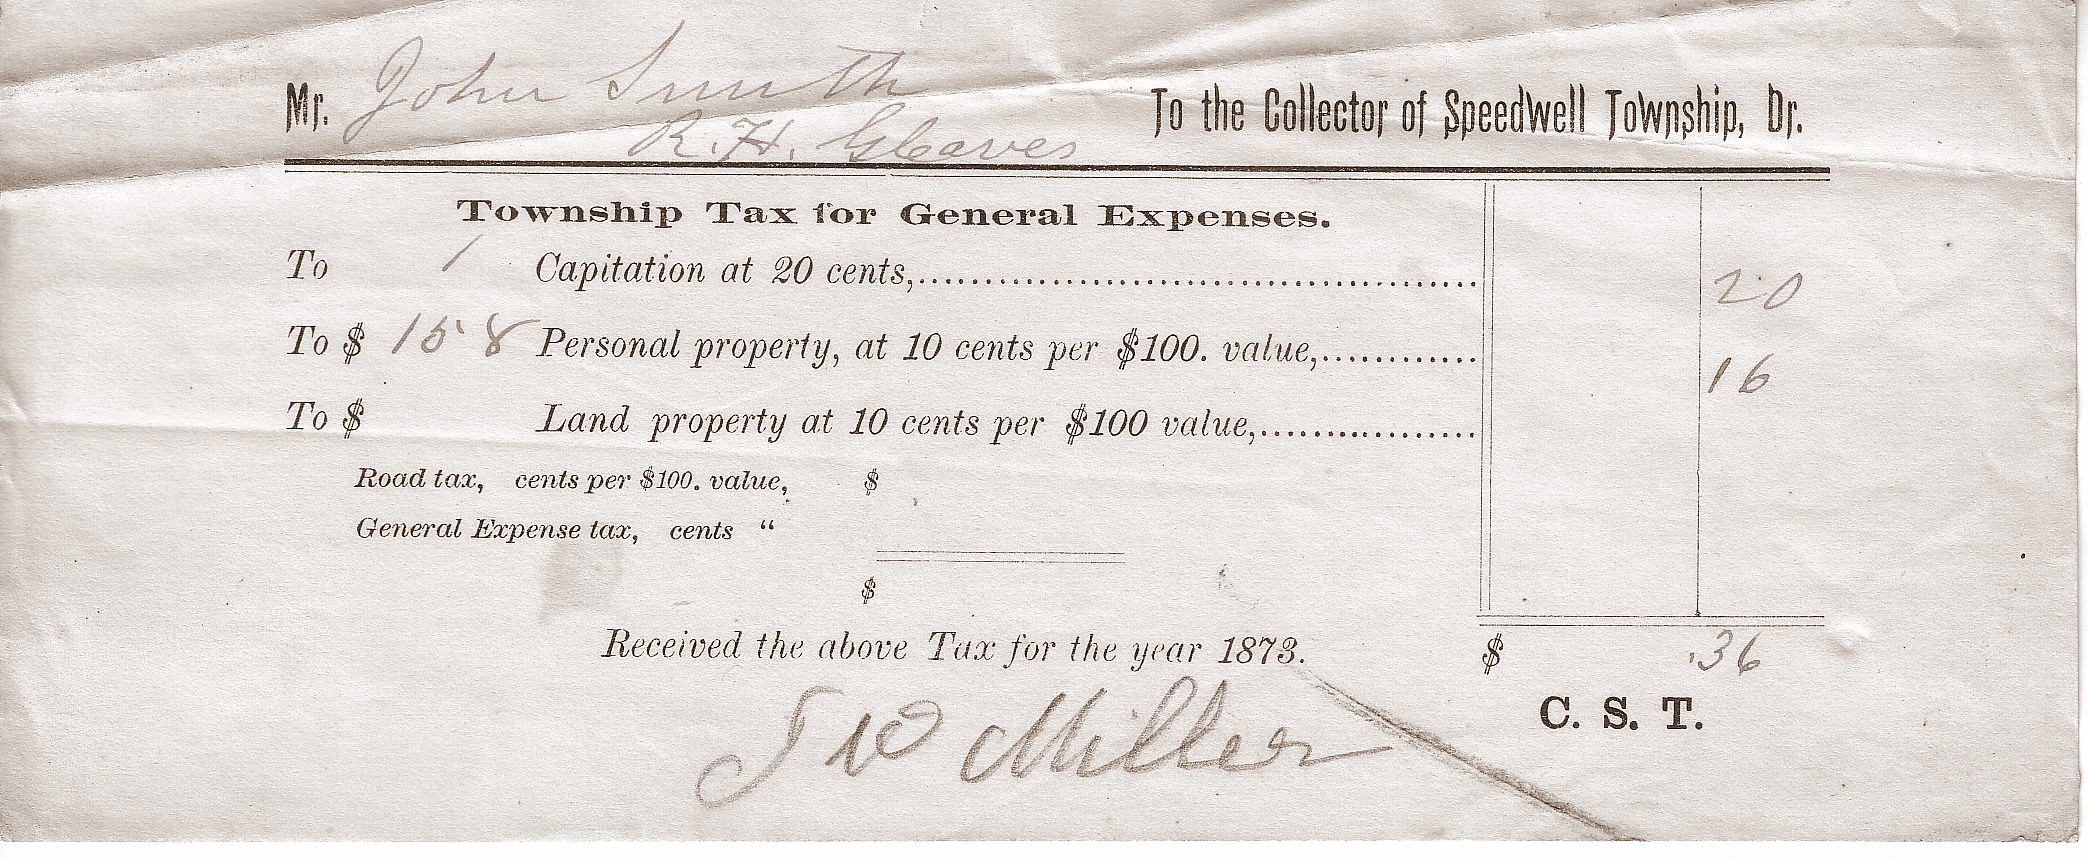 Mr. John Smith To the Collector of Speedwell Township, Dr.
R. H. Gleaves
Township Tax for General Expenses.
To 1 Capitation at 20 cents,........................................ 20
To $ 158 Personal property, at 10 cents per $100. value,............ 16
To $ Land property at 10 cents per $100 value,.................
Road tax, cents per $100. value, $
General Expense tax, cents “
$
Received the above Tax for the year 1873. $ .36
C. S. T.
J W Miller